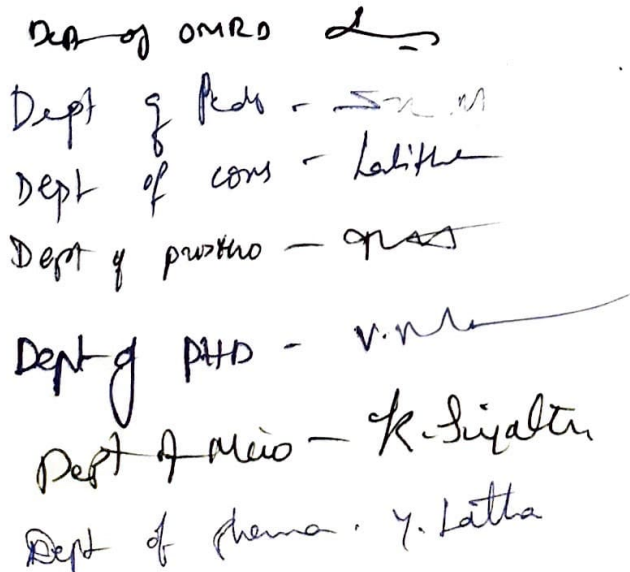 Dept of OMRD
Dept of Pedo -
Dept of cons - Lalitha
Dept of prostho -
Dept of PHD - V.
Dept of Micro - K.
Dept of pharma. Y. Latha